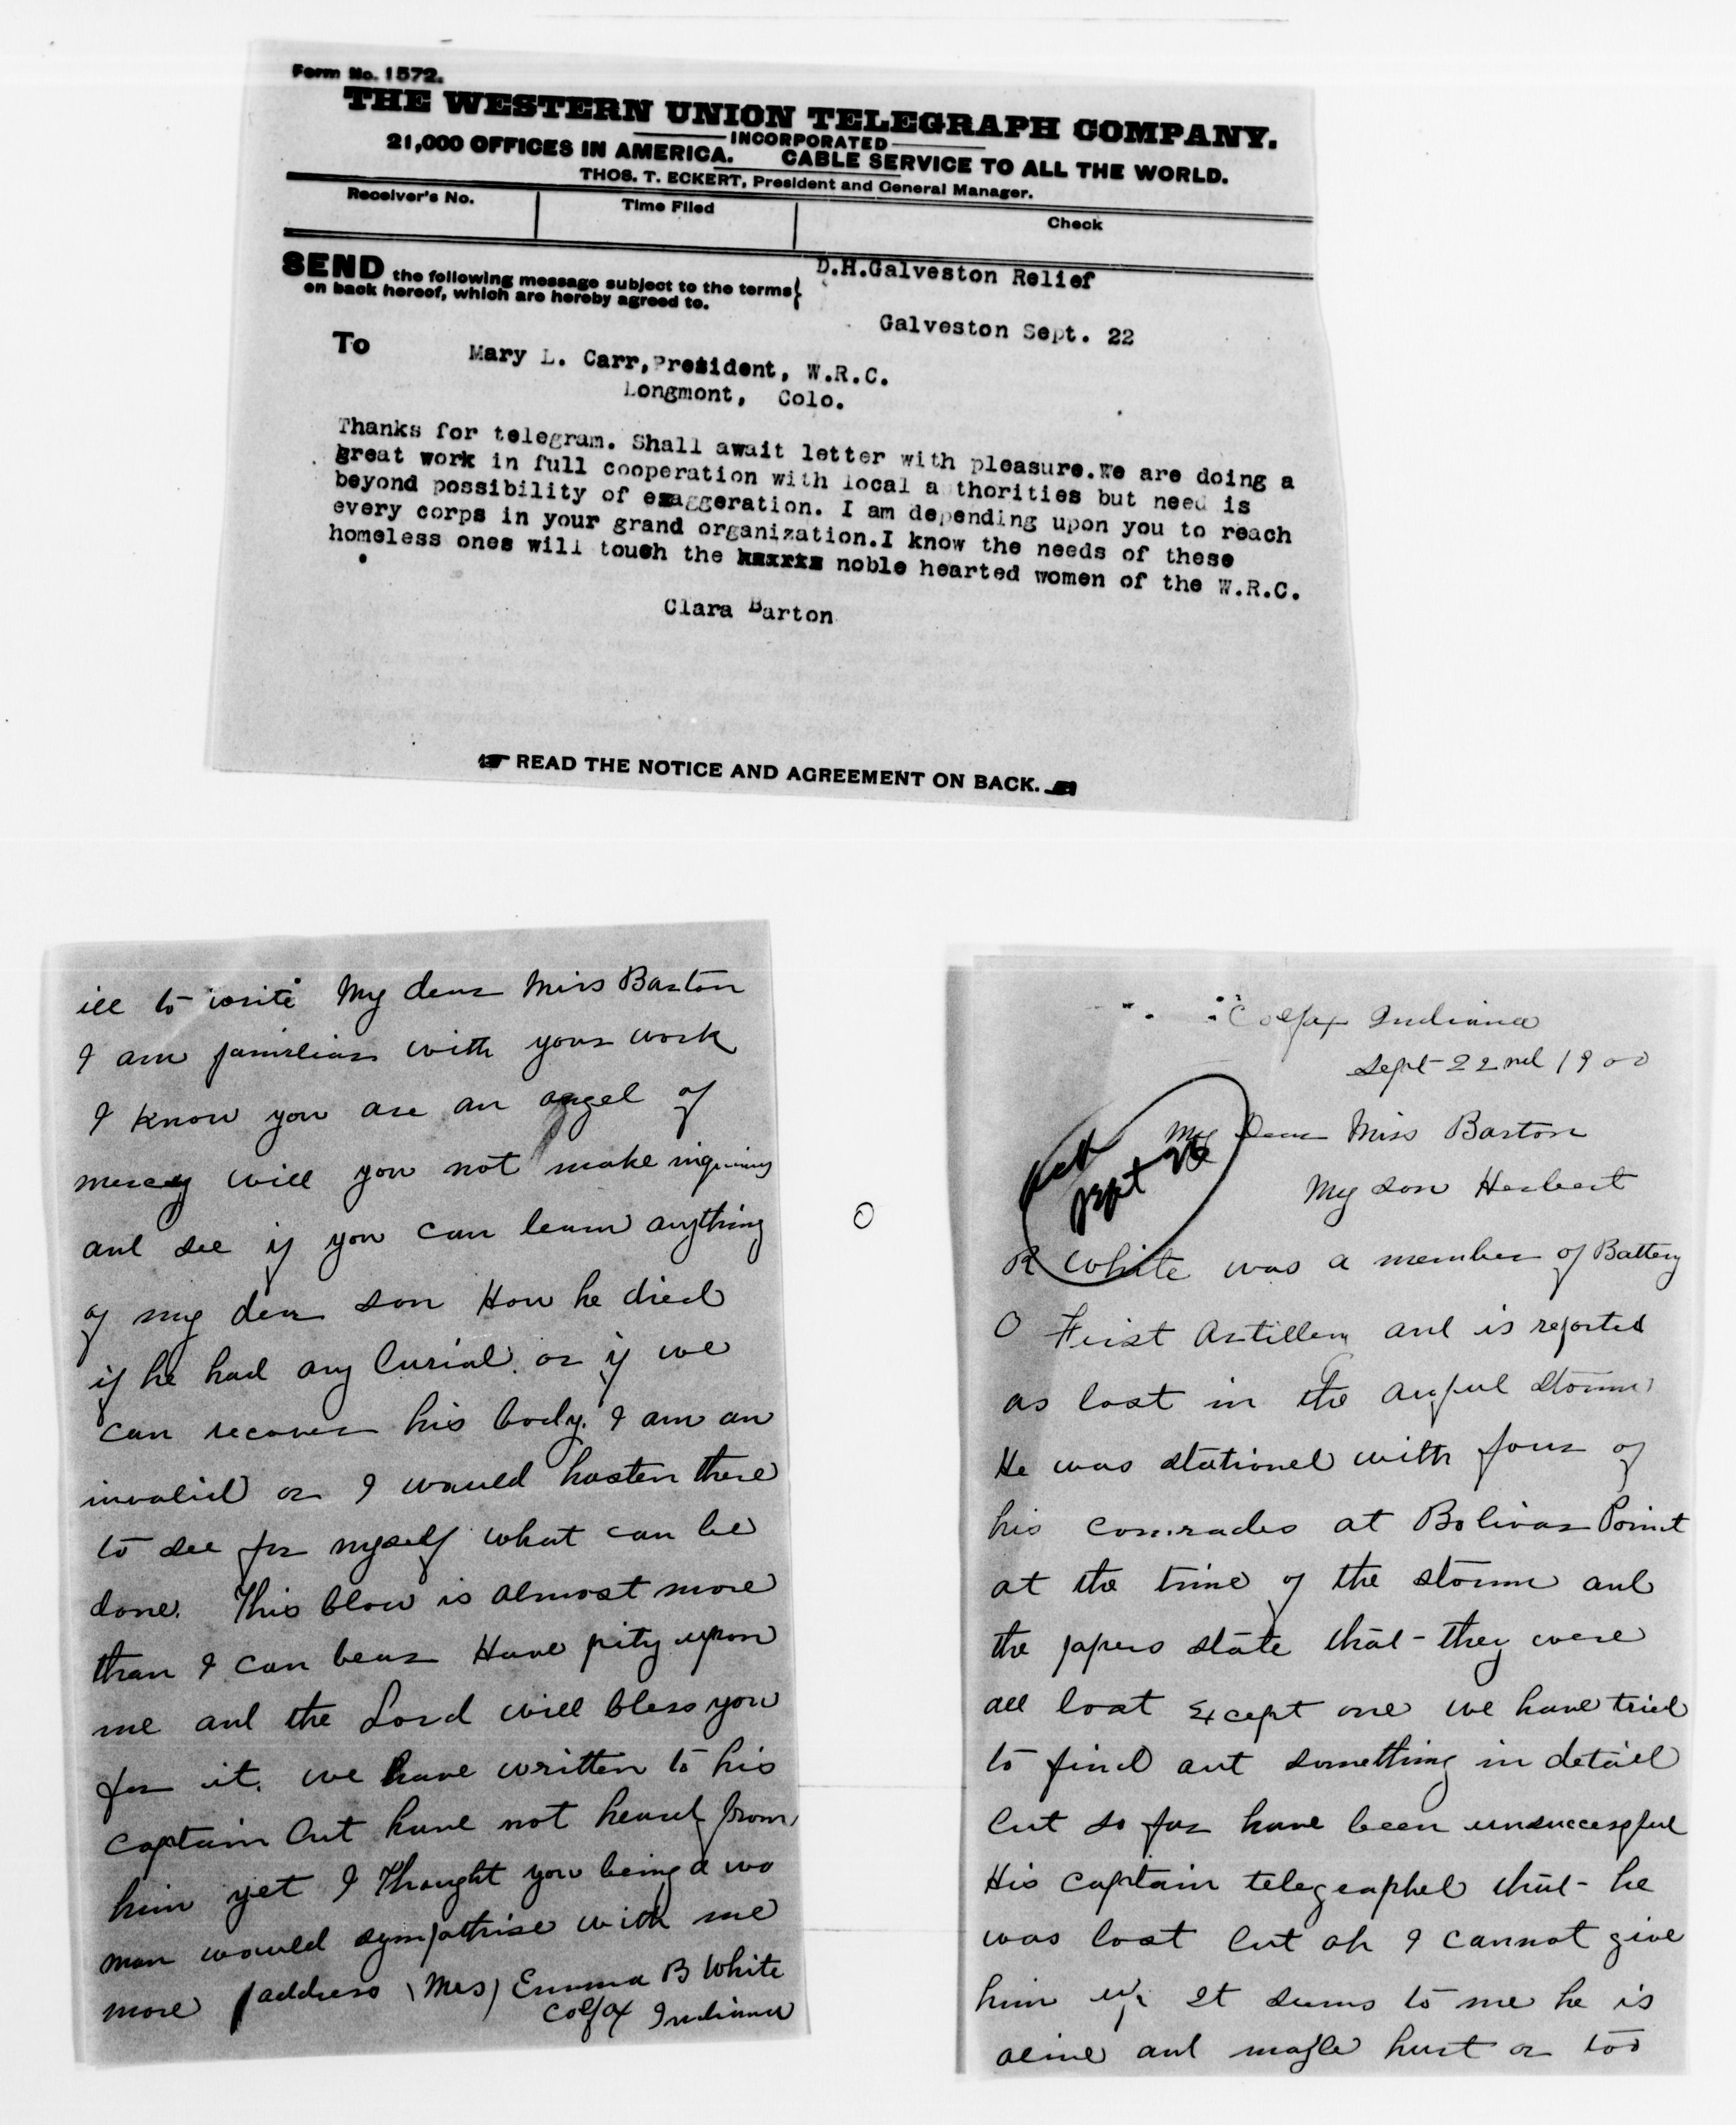 Form No. 1572.
THE WESTERN UNION TELEGRAPH COMPANY.
INCORPORATED
21,000 OFFICES IN AMERICA. CABLE SERVICE TO ALL THE WORLD.
THOS. T. ECKERT, President and General Manager.
Receiver's No. Time Filed Check
SEND the following message subject to the terms
on back hereof, which are hereby agreed to.
D.H.Galveston Relief
Galveston Sept. 22
To Mary L. Carr,President, W.R.C.
Longmont, Colo.
Thanks for telegram. Shall await letter with pleasure.We are doing a
great work in full cooperation with local a thorities but need is
beyond possibility of exaggeration. I am depending upon you to reach
every corps in your grand organization.I know the needs of these
homeless ones will touch the noble hearted women of the W.R.C.
Clara Barton
READ THE NOTICE AND AGREEMENT ON BACK.
Colfax Indiana
Sept-22nd 1900
My Dear Miss Barton
Ack
Sept 26
My son Herbert
R White was a member of Battery
O First Artillery and is reported
as lost in the awful storm
He was stationed with four of
his comrades at Bolivar Point
at the time of the storm and
the papers state that-they were
all lost Except one we have tried
to find out something in detail
but so far have been unsuccessful
His Captain telegraphed that-he
was lost but oh I cannot give
him up It seems to me he is
alive and maybe hurt or too
ill to write My dear Miss Barton
I am familiar with your work
I know you are an angel of
mercy will you not make inquiry
and see if you can learn anything
of my dear son How he died
if he had any burial. or if we
can recover his body. I am an
invalid or I would hasten there
to see for myself what can be
done. This blow is almost more
than I can bear Have pity upon
me and the Lord will bless you
for it. we have written to his
captain but have not heard from
him yet I Thought you being a wo
man would sympathise with me
more address (Mrs) Emma B White
Colfax Indiana